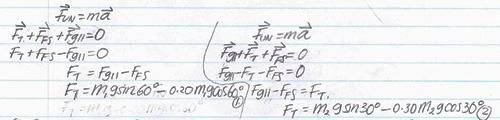 F⃗UN = ma⃗
F⃗T + F⃗FS + F⃗g11 = 0
FT + FFS - Fg11 = 0
FT = Fg11 - FFS
FT = m1gsin60° - 0.20m1gcos60° ①
F⃗UN = ma⃗
F⃗g11 + F⃗T + F⃗FS = 0
Fg11 - FT - FFS = 0
Fg11 - FFS = FT.
FT = m2gsin30° - 0.30m2gcos30° ②